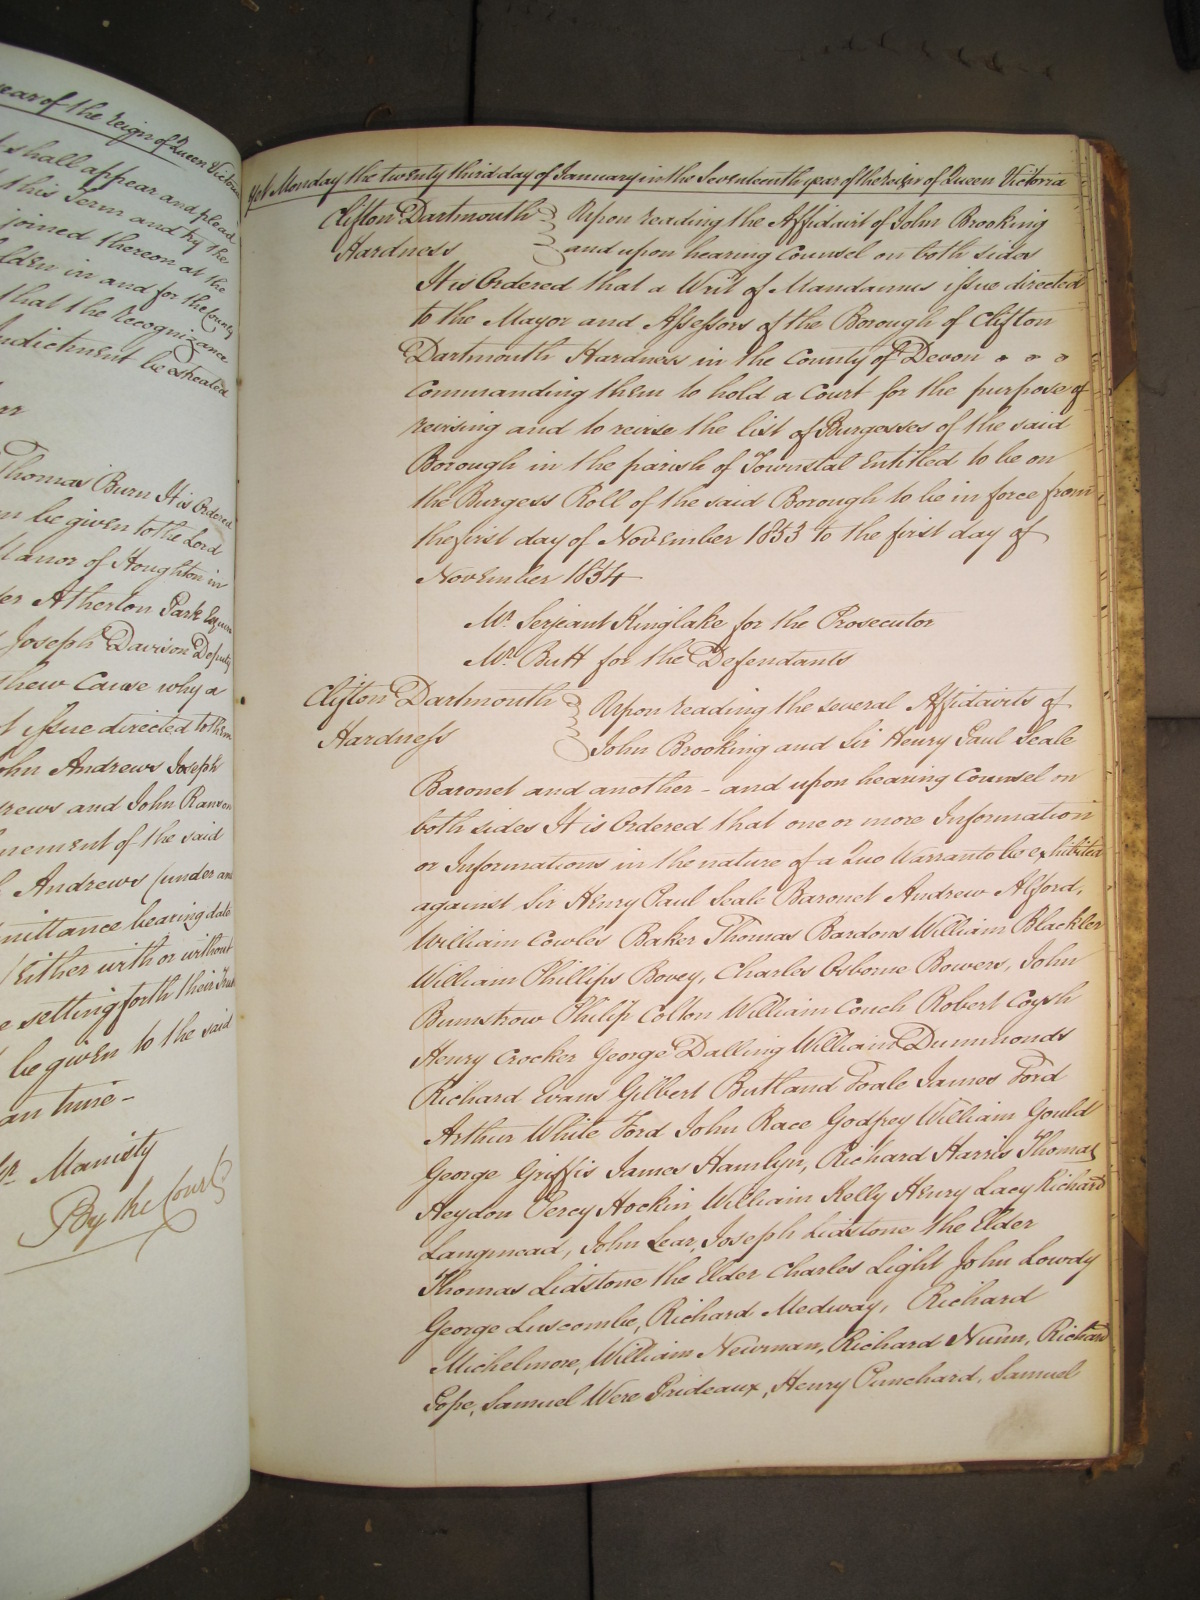 year of the reign of Queen Victoria
shall appear and plead
this Term and try the
joined thereon at the
in and for the County
that the Recognizance
Indictment be estreated
Thomas Burn It is Ordered
be given to the Lord
Manor of Houghton in
Atherton Park Esquire
Joseph Davison Deputy
shew Cause why a
issue directed to them
John Andrews Joseph
Andrews and John Ranson
of the said
Andrews (under
bearing date
(Either with or without
setting forth their
be given to the said
an time -
Mr. Manisty
By the Court
Yet Monday the twenty third day of January in the Seventeenth year of the reign of Queen Victoria
Clifton Dartmouth Upon reading the Affidavit of John Brooking
Hardness and upon hearing Counsel on both sides
It is Ordered that a Writ of Mandamus issue directed
to the Mayor and Assessors of the Borough of Clifton
Dartmouth Hardness in the County of Devon
Commanding them to hold a Court for the purpose of
revising and to revise the list of Burgesses of the said
Borough in the parish of Townstal Entitled to be on
the Burgess Roll of the said Borough to be in force from
the first day of November 1853 to the first day of
November 1854
Mr. Serjeant Kinglake for the Prosecutor
Mr. Butt for the Defendants
Clifton Dartmouth Upon reading the several Affidavits of
Hardness John Brooking and Sir Henry Paul Seale
Baronet and another - and upon hearing Counsel on
both sides It is Ordered that one or more Information
or Informations in the nature of a Quo Warranto be exhibited
against Sir Henry Paul Seale Baronet Andrew Alford,
William Cowles Baker Thomas Bardons William Blackler
William Phillips Bovey, Charles Osborne Bowers, John
Bumstrow Philip Colton William Couch Robert Coysh
Henry Crocker George Dalling William Dummonds
Richard Evans Gilbert Butland Foale James Ford
Arthur White Ford John Race Godfrey William Gould
George Griffis James Hamlyn, Richard Harris Thomas
Heydon Percy Hockin William Kelly Henry Lacy Richard
Langmead, John Lear, Joseph Lidstone the Elder
Thomas Lidstone the Elder Charles Light John Lowdy
George Luscombe, Richard Medway, Richard
Michelmore, William Newman, Richard Nunn, Richard
Pope, Samuel Were Prideaux, Henry Punchard, Samuel